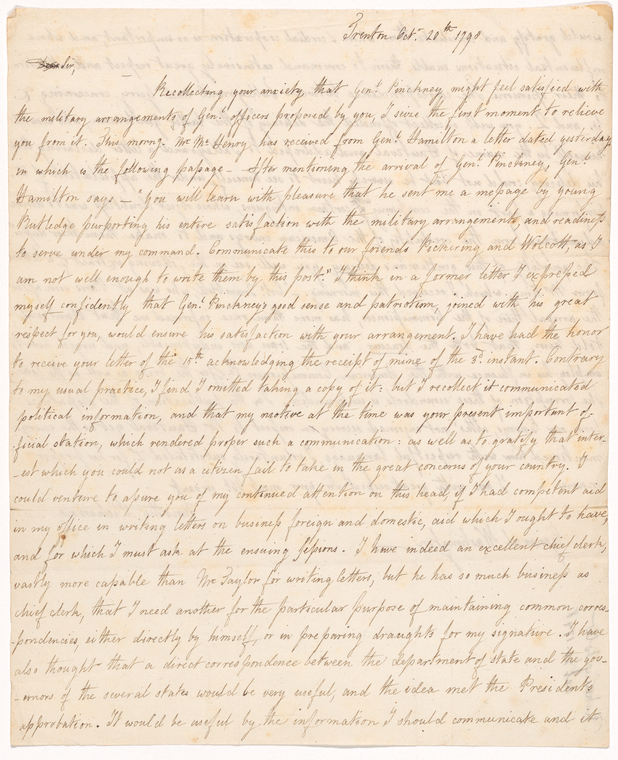 Trenton Oct. 20th 1798
Sir,
Recollecting your anxiety that Genl. Pinckney might feel satisfied with
the military arrangements of Genl. officers proposed by you, I seize the first moment to relieve
you from it. This morng. Mr. McHenry has received from Genl. Hamilton a letter dated yesterday
in which is the following passage — After mentioning the arrival of Genl. Pinckney, Genl.
Hamilton says — "You will learn with pleasure that he sent me a message by young
Rutledge purporting his entire satisfaction with the military arrangements, and readiness
to serve under my command. Communicate this to our friends Pickering and Wolcott, as I
am not well enough to write them by this post." I think in a former letter I expressed
myself confidently that Genl. Pinckney's good sense and patriotism, joined with his great
respect for you, would ensure his satisfaction with your arrangement. I have had the honor
to receive your letter of the 15th acknowledging the receipt of mine of the 3d. instant. Contrary
to my usual practice, I find I omitted taking a copy of it: but I recollect it communicated
political information, and that my motive at the time was your present important of-
ficial station, which rendered proper such a communication: as well as to gratify that inter-
-est which you could not as a citizen fail to take in the great concerns of your country. I
could venture to assure you of my continued attention on this head, if I had competent aid
in my office in writing letters on business foreign and domestic, aid which I ought to have,
and for which I must ask at the ensuing session. I have indeed an excellent chief clerk,
vastly more capable than Mr. Taylor for writing letters, but he has so much business as
chief clerk, that I need another for the particular purpose of maintaining common corres-
-pondencies, either directly by himself, or in preparing draughts for my signature. I have
also thought that a direct correspondence between the department of state and the gov-
-ernors of the several states would be very useful, and the idea met the President's
approbation. It would be useful by the information I should communicate and it